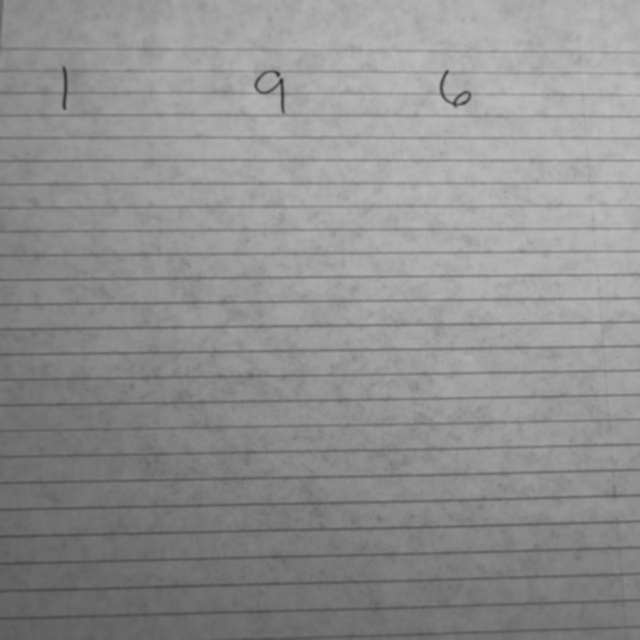 1 9 6